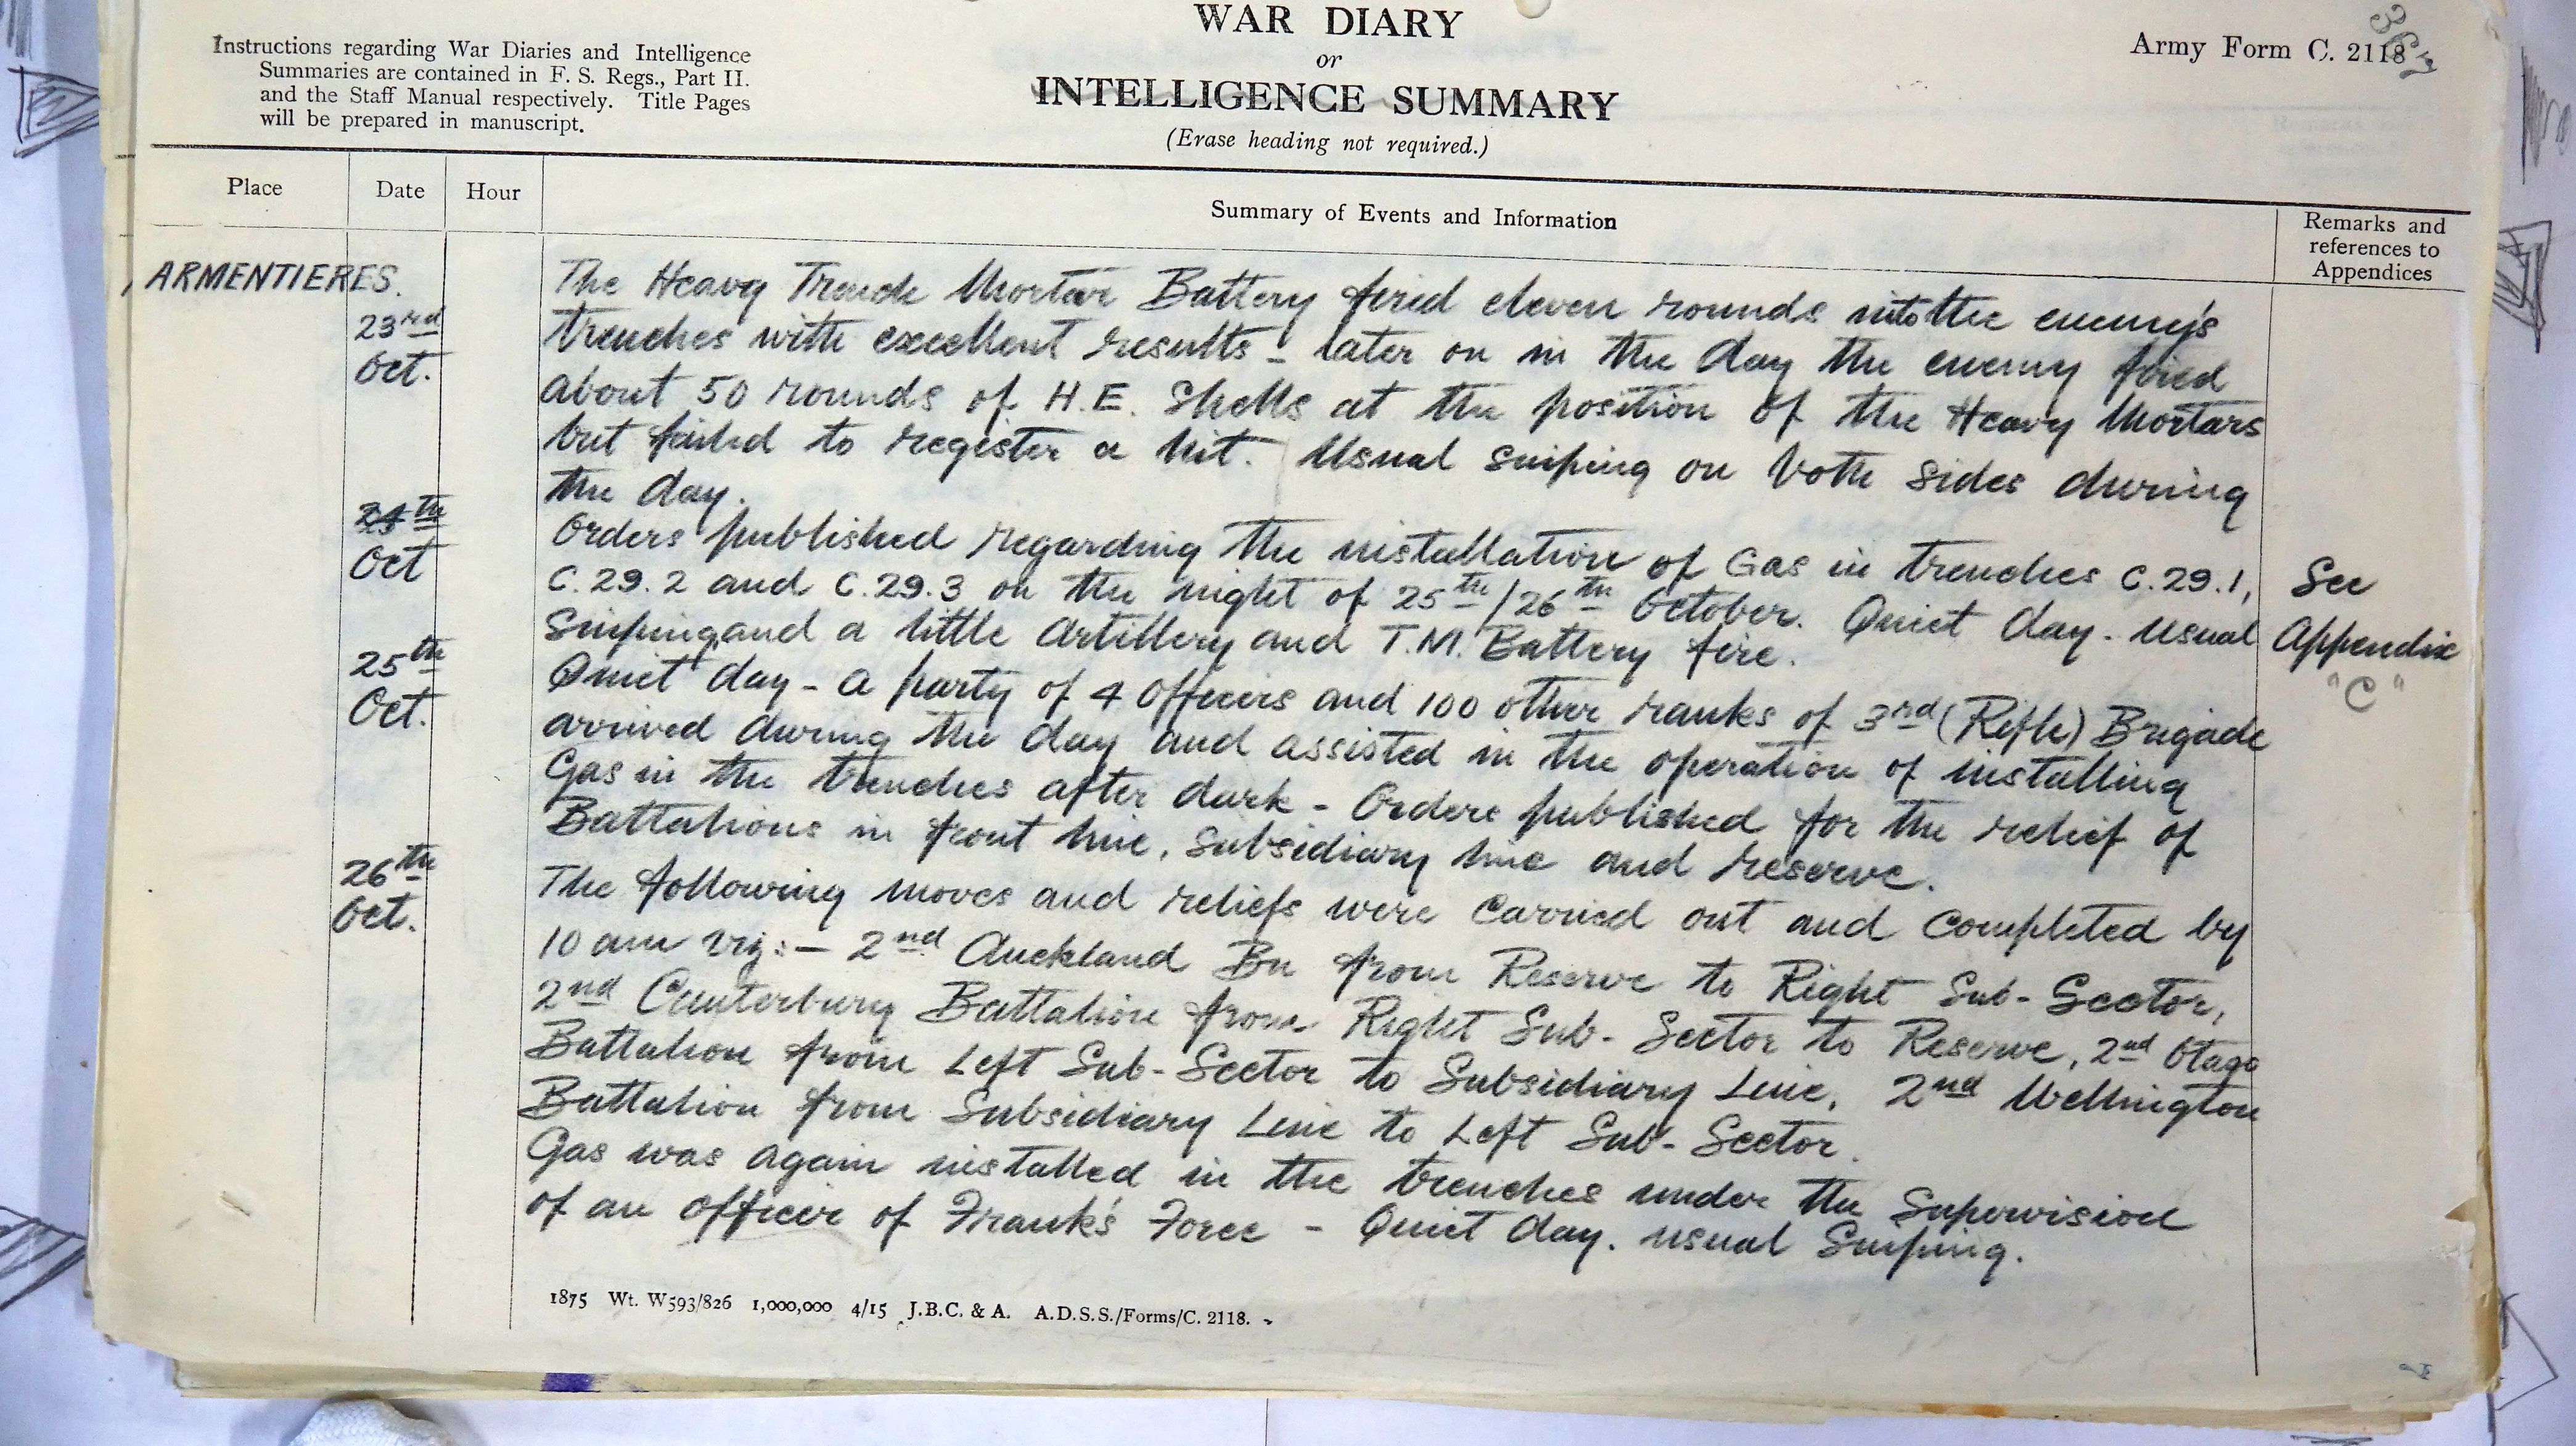 WAR DIARY
or
INTELLIGENCE SUMMARY
(Erase heading not required.)
Instructions regarding War Diaries and Intelligence
Summaries are contained in F. S. Regs., Part II.
and the Staff Manual respectively. Title Pages
will be prepared in manuscript.
Army Form C. 2118
Place Date Hour Summary of Events and Information Remarks and
references to
Appendices
ARMENTIERES.
23rd
Oct.
The Heavy Trench Mortar Battery fired eleven rounds into the enemy's
trenches with excellent results - later on in the day the enemy fired
about 50 rounds of H.E. Shells at the position of the Heavy Mortars
but failed to register a hit. Usual sniping on both sides during
the day.
24th
Oct
Orders published regarding the installation of Gas in trenches C.29.1,
C.29.2 and C.29.3 on the night of 25th/26th October. Quiet day. Usual
Sniping and a little Artillery and T.M. Battery fire.
See
Appendix
"C"
25th
Oct.
Quiet day - a party of 4 Officers and 100 other ranks of 3rd (Rifle) Brigade
arrived during the day and assisted in the operation of installing
Gas in the trenches after dark - Orders published for the relief of
Battalions in front line, subsidiary line and reserve.
26th
Oct.
The following moves and reliefs were carried out and completed by
10 am viz:- 2nd Auckland Bn from Reserve to Right Sub-Sector,
2nd Canterbury Battalion from Right Sub-Sector to Reserve, 2nd Otago
Battalion from Left Sub-Sector to Subsidiary Line, 2nd Wellington
Battalion from Subsidiary Line to Left Sub-Sector.
Gas was again installed in the trenches under the Supervision
of an officer of Frank's Force - Quiet day. usual Sniping.
1875 Wt. W593/826 1,000,000 4/15 J.B.C. & A. A.D.S.S./Forms/C. 2118.